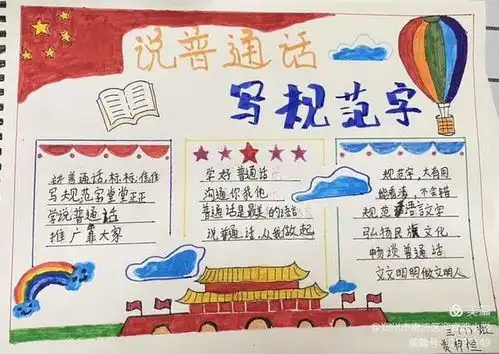 说普通话
写规范字
讲普通话,标标准准
写规范字堂堂正正
学说普通话
推广靠大家
学好普通话
沟通你我他
普通话是最美的语言
说普通话,从我做起
规范字,大有用
能看清,不会错
规范语言文字
弘扬民族文化
畅谈普通话
文文明明做文明人
美篇